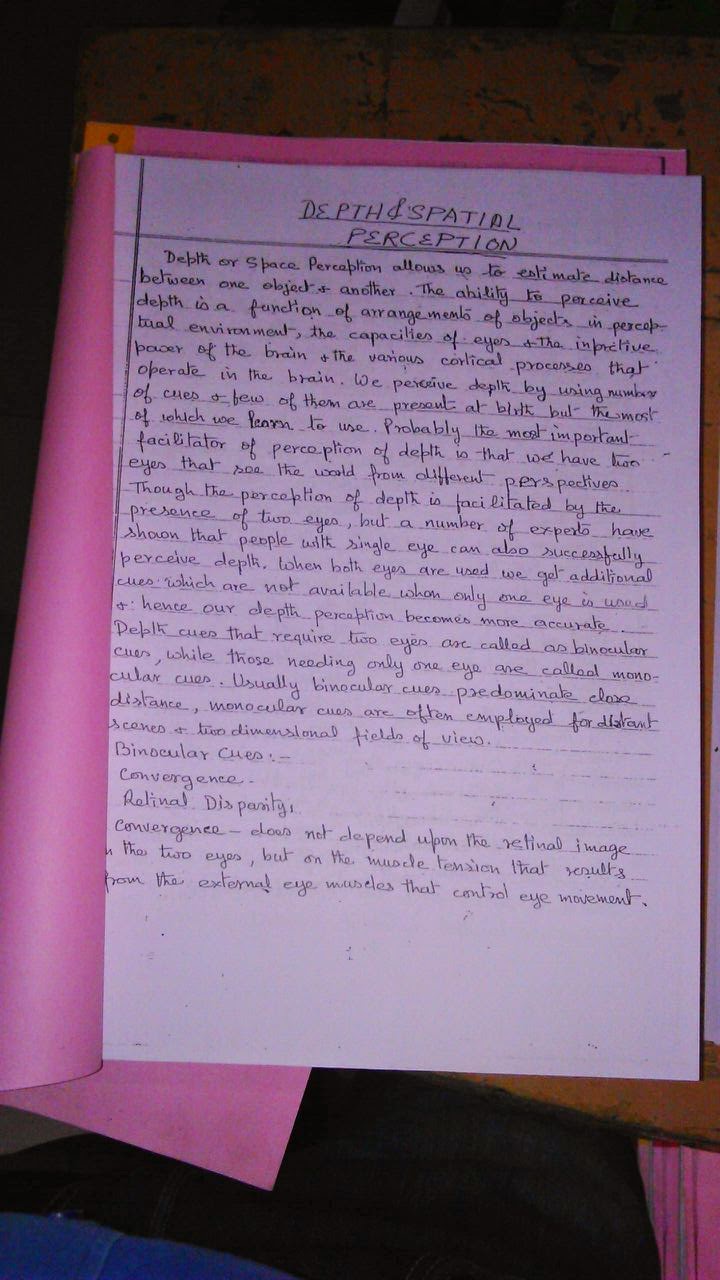 DEPTH & SPATIAL
PERCEPTION
Depth or Space Perception allows us to estimate distance
between one object & another. The ability to perceive
depth is a function of arrangements of objects in percep-
tual environment, the capacities of eyes & the inpretive
pacer of the brain & the various cortical processes that
operate in the brain. We perceive depth by using number
of cues & few of them are present at birth but the most
of which we learn to use. Probably the most important
facilitator of perception of depth is that we have two
eyes that see the world from different perspectives
Though the perception of depth is facilitated by the
presence of two eyes, but a number of experts have
shown that people with single eye can also successfully
perceive depth. When both eyes are used we get additional
cues which are not available when only one eye is used
& hence our depth perception becomes more accurate.
Depth cues that require two eyes are called as binocular
cues, while those needing only one eye are called mono-
cular cues. Usually binocular cues predominate close
distance, monocular cues are often employed for distant
scenes & two dimensional fields of view.
Binocular Cues:-
Convergence -
Retinal Disparity,
Convergence - does not depend upon the retinal image
n the two eyes, but on the muscle tension that results
from the external eye muscles that control eye movement.